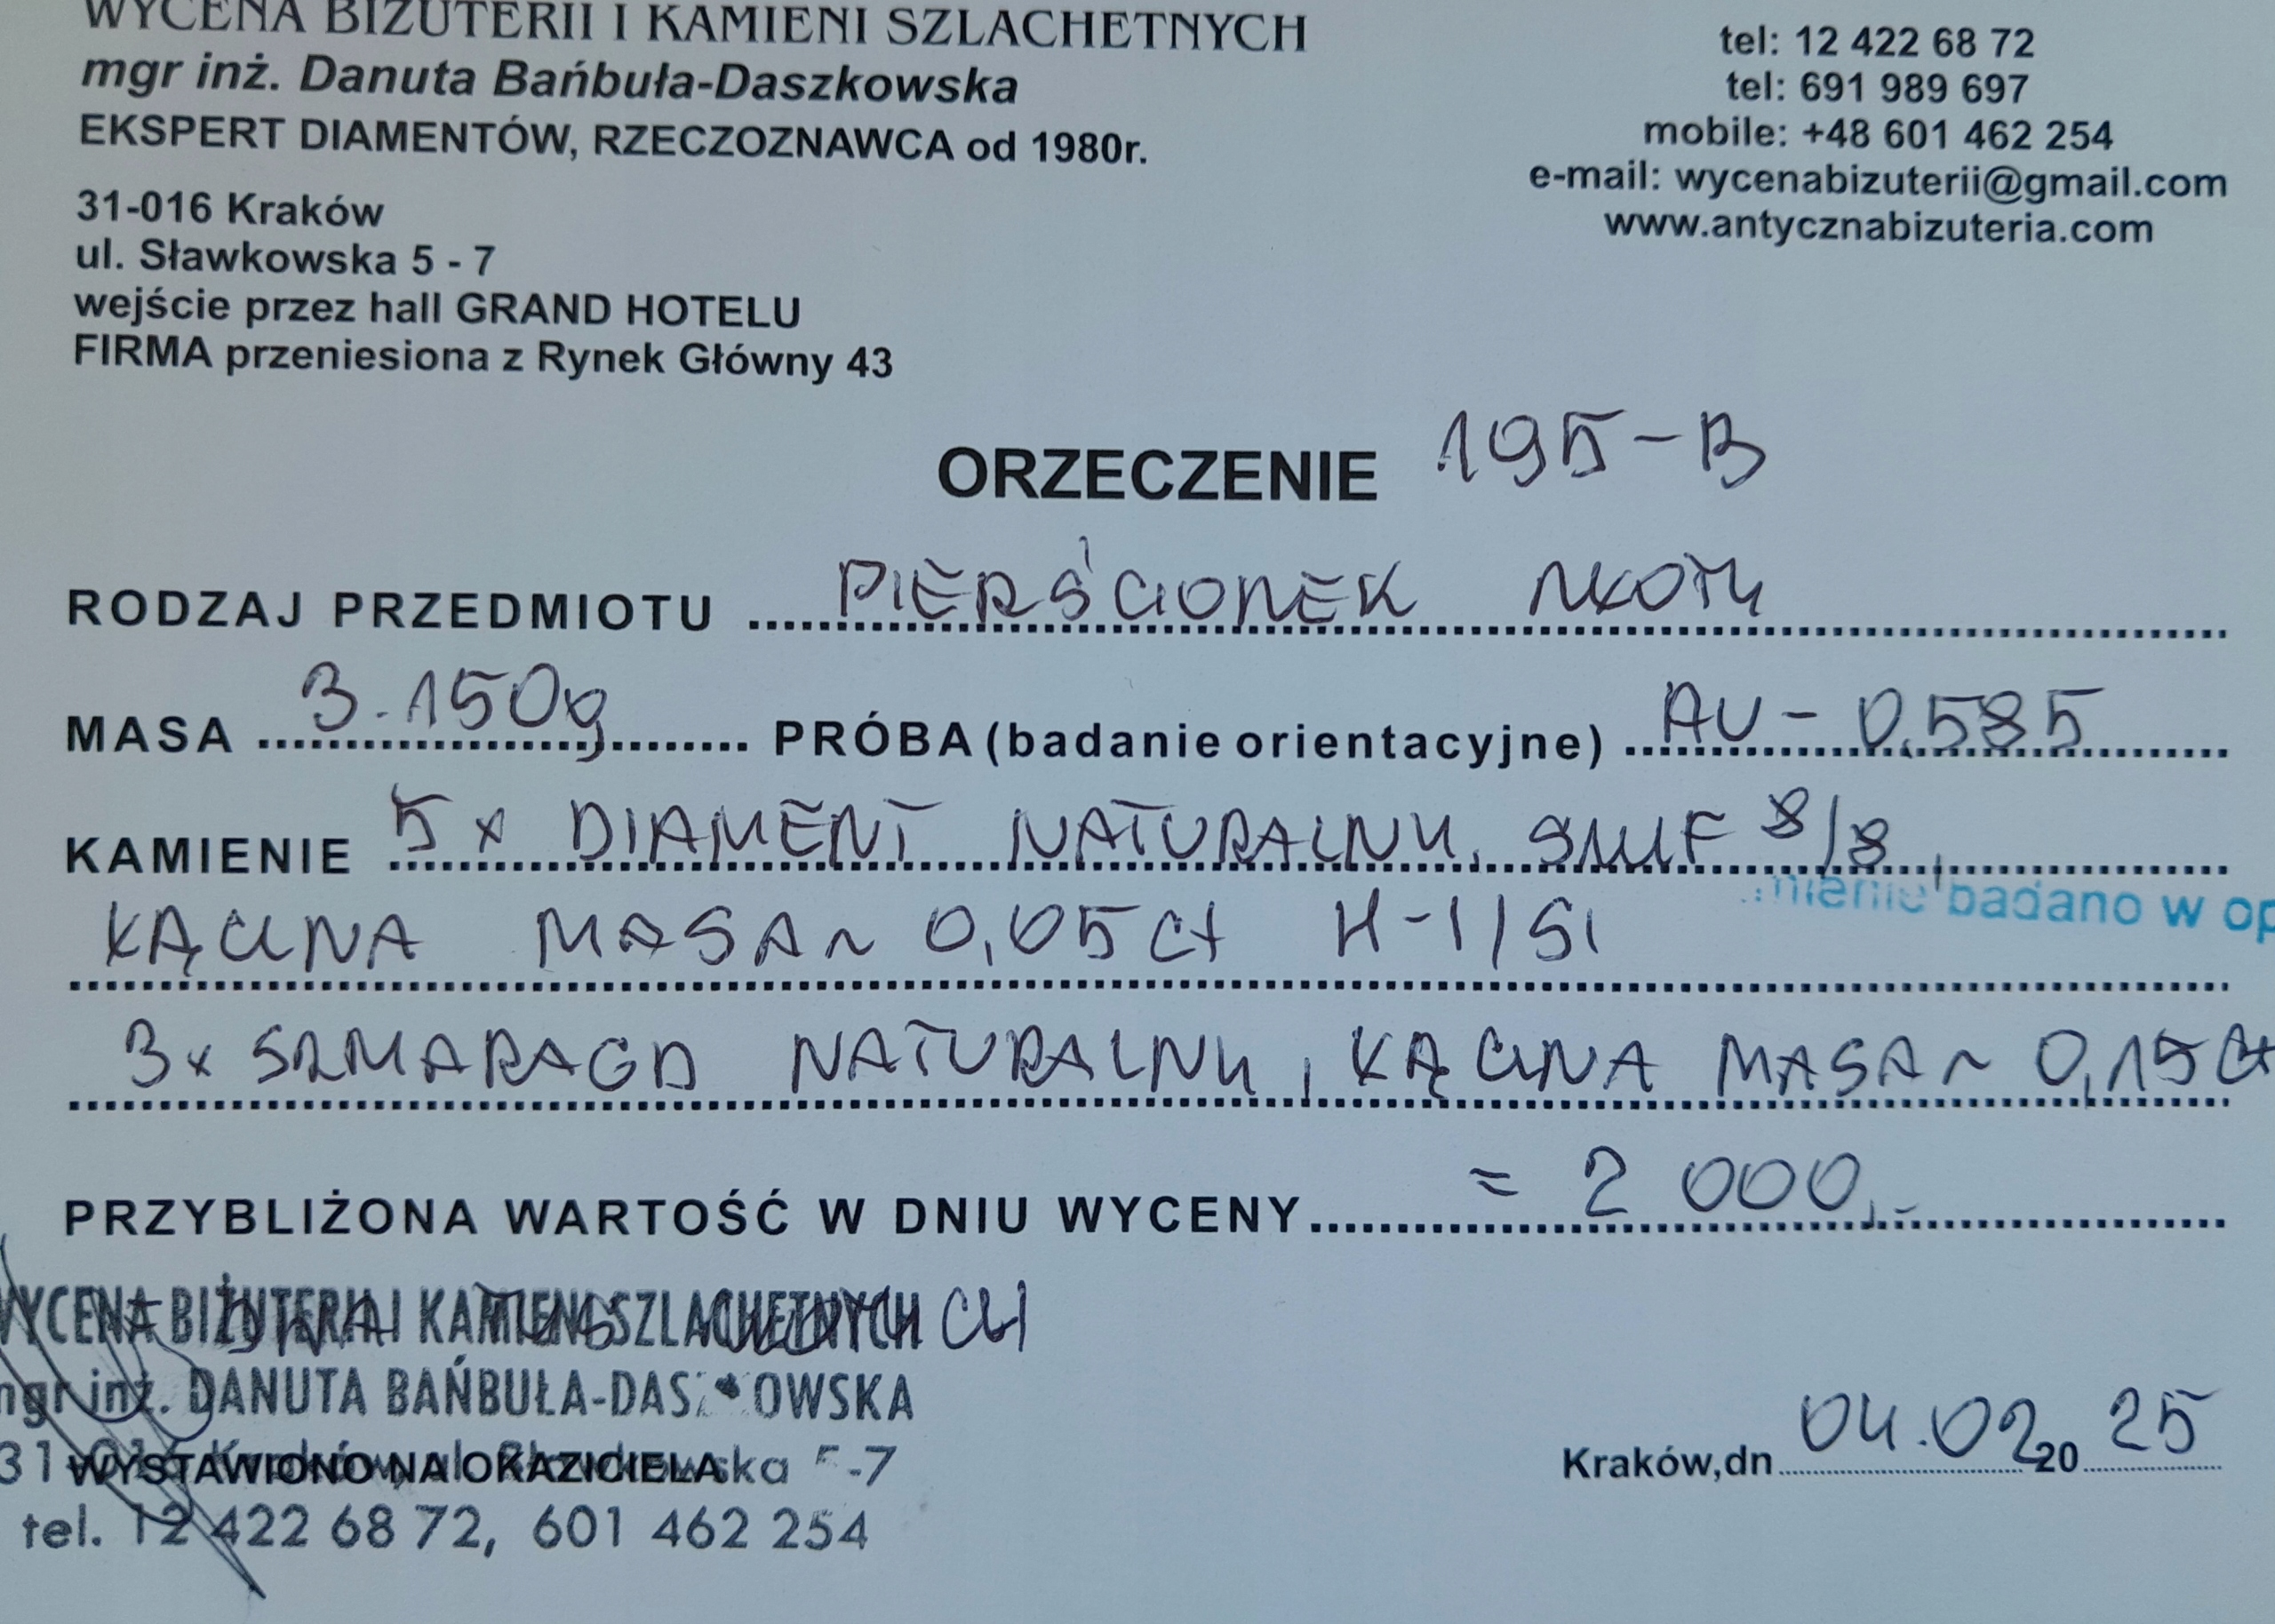 WYCENA BIŻUTERII I KAMIENI SZLACHETNYCH
mgr inż. Danuta Bańbuła-Daszkowska
EKSPERT DIAMENTÓW, RZECZOZNAWCA od 1980r.
31-016 Kraków
ul. Sławkowska 5 - 7
wejście przez hall GRAND HOTELU
FIRMA przeniesiona z Rynek Główny 43
tel: 12 422 68 72
tel: 691 989 697
mobile: +48 601 462 254
e-mail: wycenabizuterii@gmail.com
www.antycznabizuteria.com
ORZECZENIE 195-B
RODZAJ PRZEDMIOTU PIERŚCIONEK
MASA 3.150g PRÓBA (badanie orientacyjne) AU - 0,585
KAMIENIE 5 x DIAMENT NATURALNY, SZLIF 8/8,
badano w op
ŁĄCZNA MASA ~ 0,05 ct H-I/SI
3x SZMARAGD NATURALNY, ŁĄCZNA MASA ~ 0,15 ct
PRZYBLIŻONA WARTOŚĆ W DNIU WYCENY = 2 000,-
WYCENA BIŻUTERII I KAMIENI SZLACHETNYCH
mgr inż. DANUTA BAŃBUŁA-DASZKOWSKA
WYSTAWIONO NA OKAZICIELA
tel. 12 422 68 72, 601 462 254
Kraków,dn 04.02 20 25